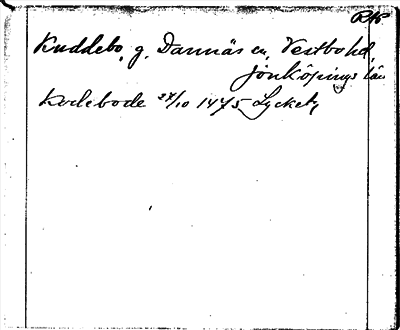 RAP
Kuddebo, g. Dannäs sn, Vestbo hd,
Jönköpings län
Kodebode 24/10 1475 Lyckets